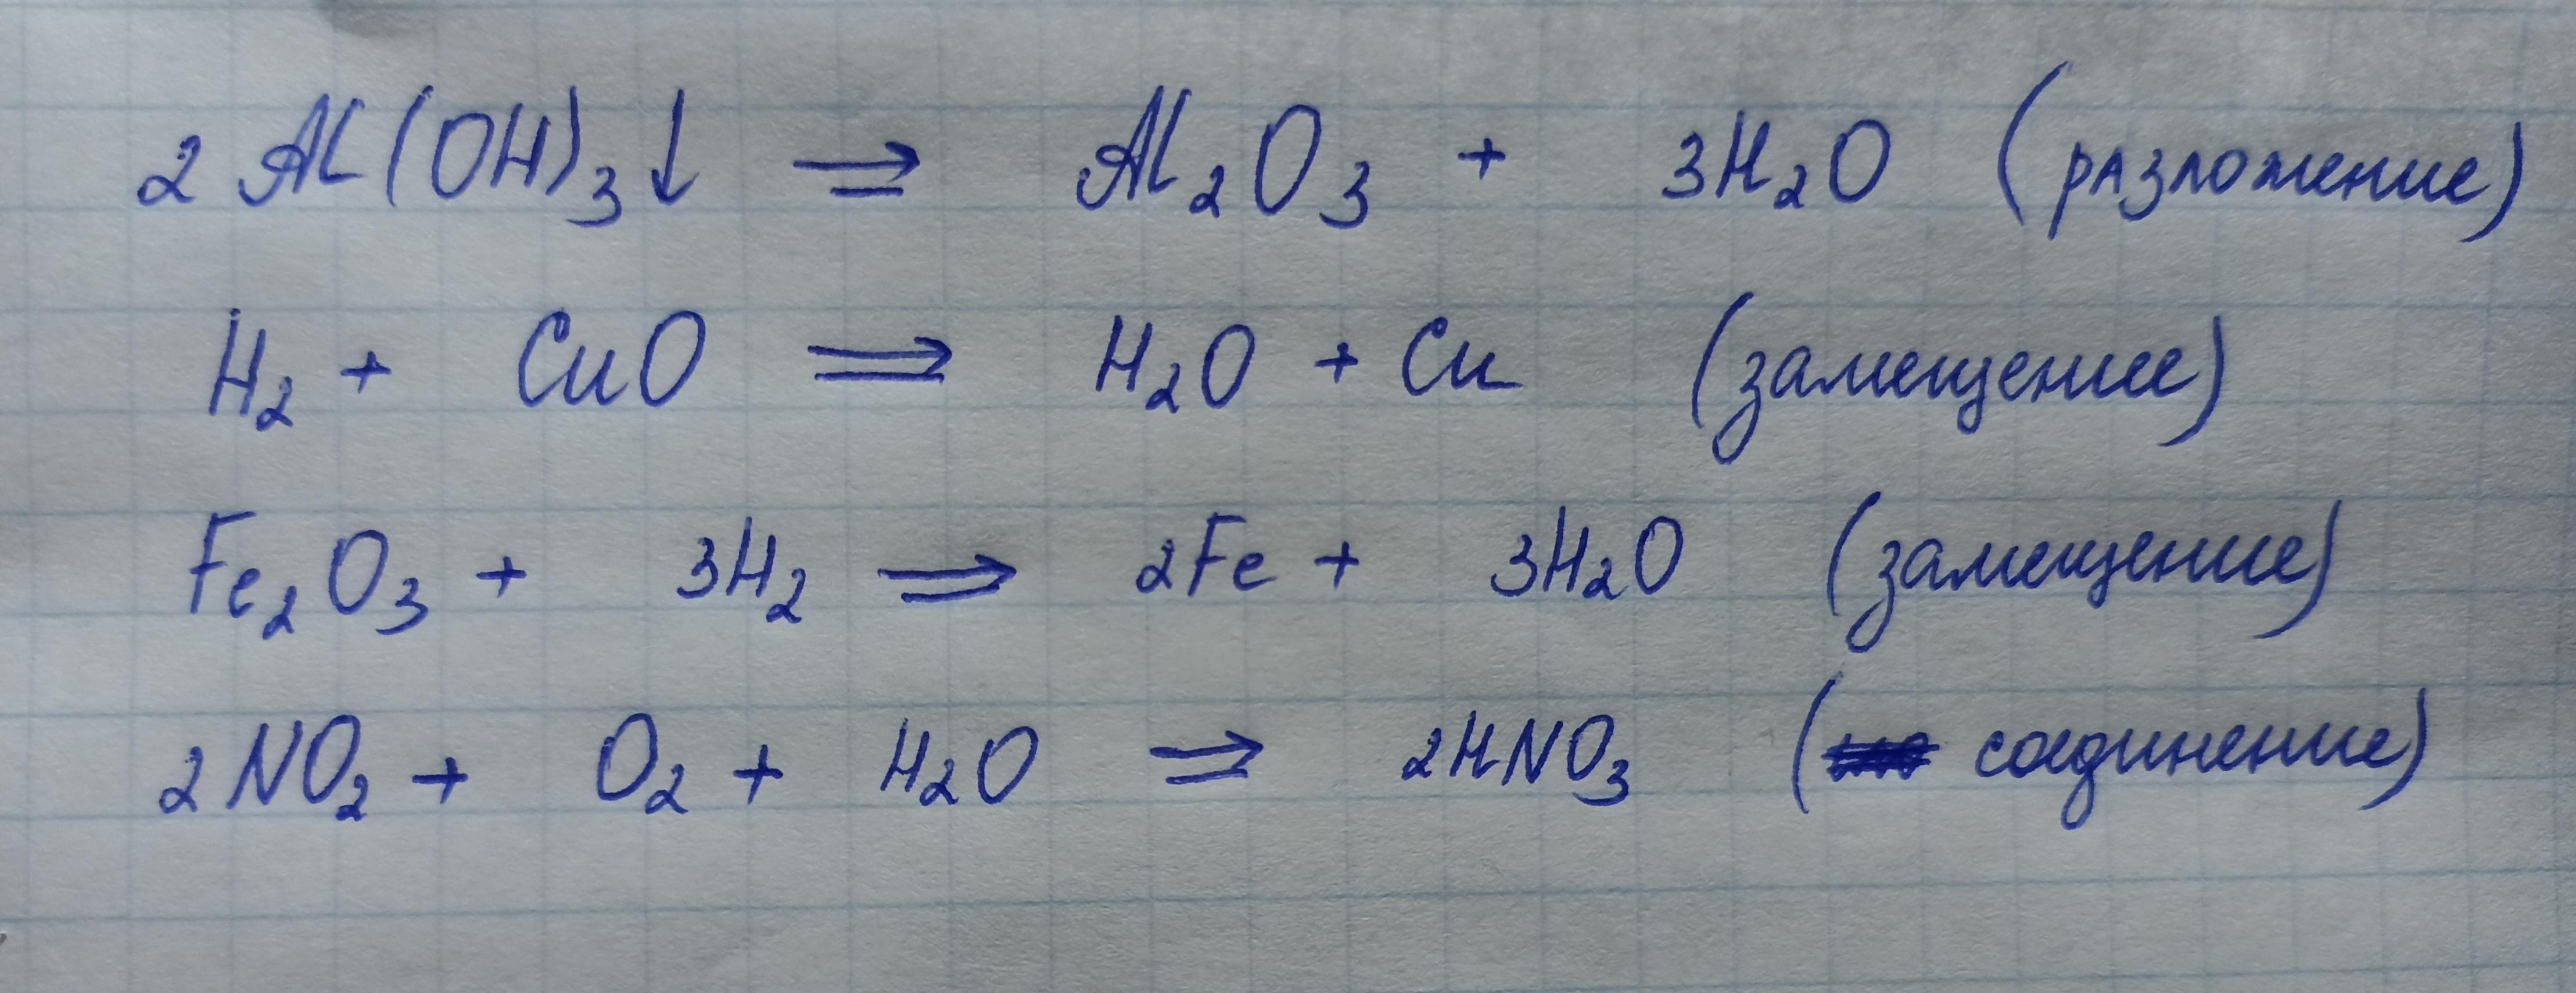 2Al(OH)₃↓ ⇒ Al₂O₃ + 3H₂O (разложение)
H₂ + CuO ⇒ H₂O + Cu (замещение)
Fe₂O₃ + 3H₂ ⇒ 2Fe + 3H₂O (замещение)
2NO₂ + O₂ + H₂O ⇒ 2HNO₃ (соединение)